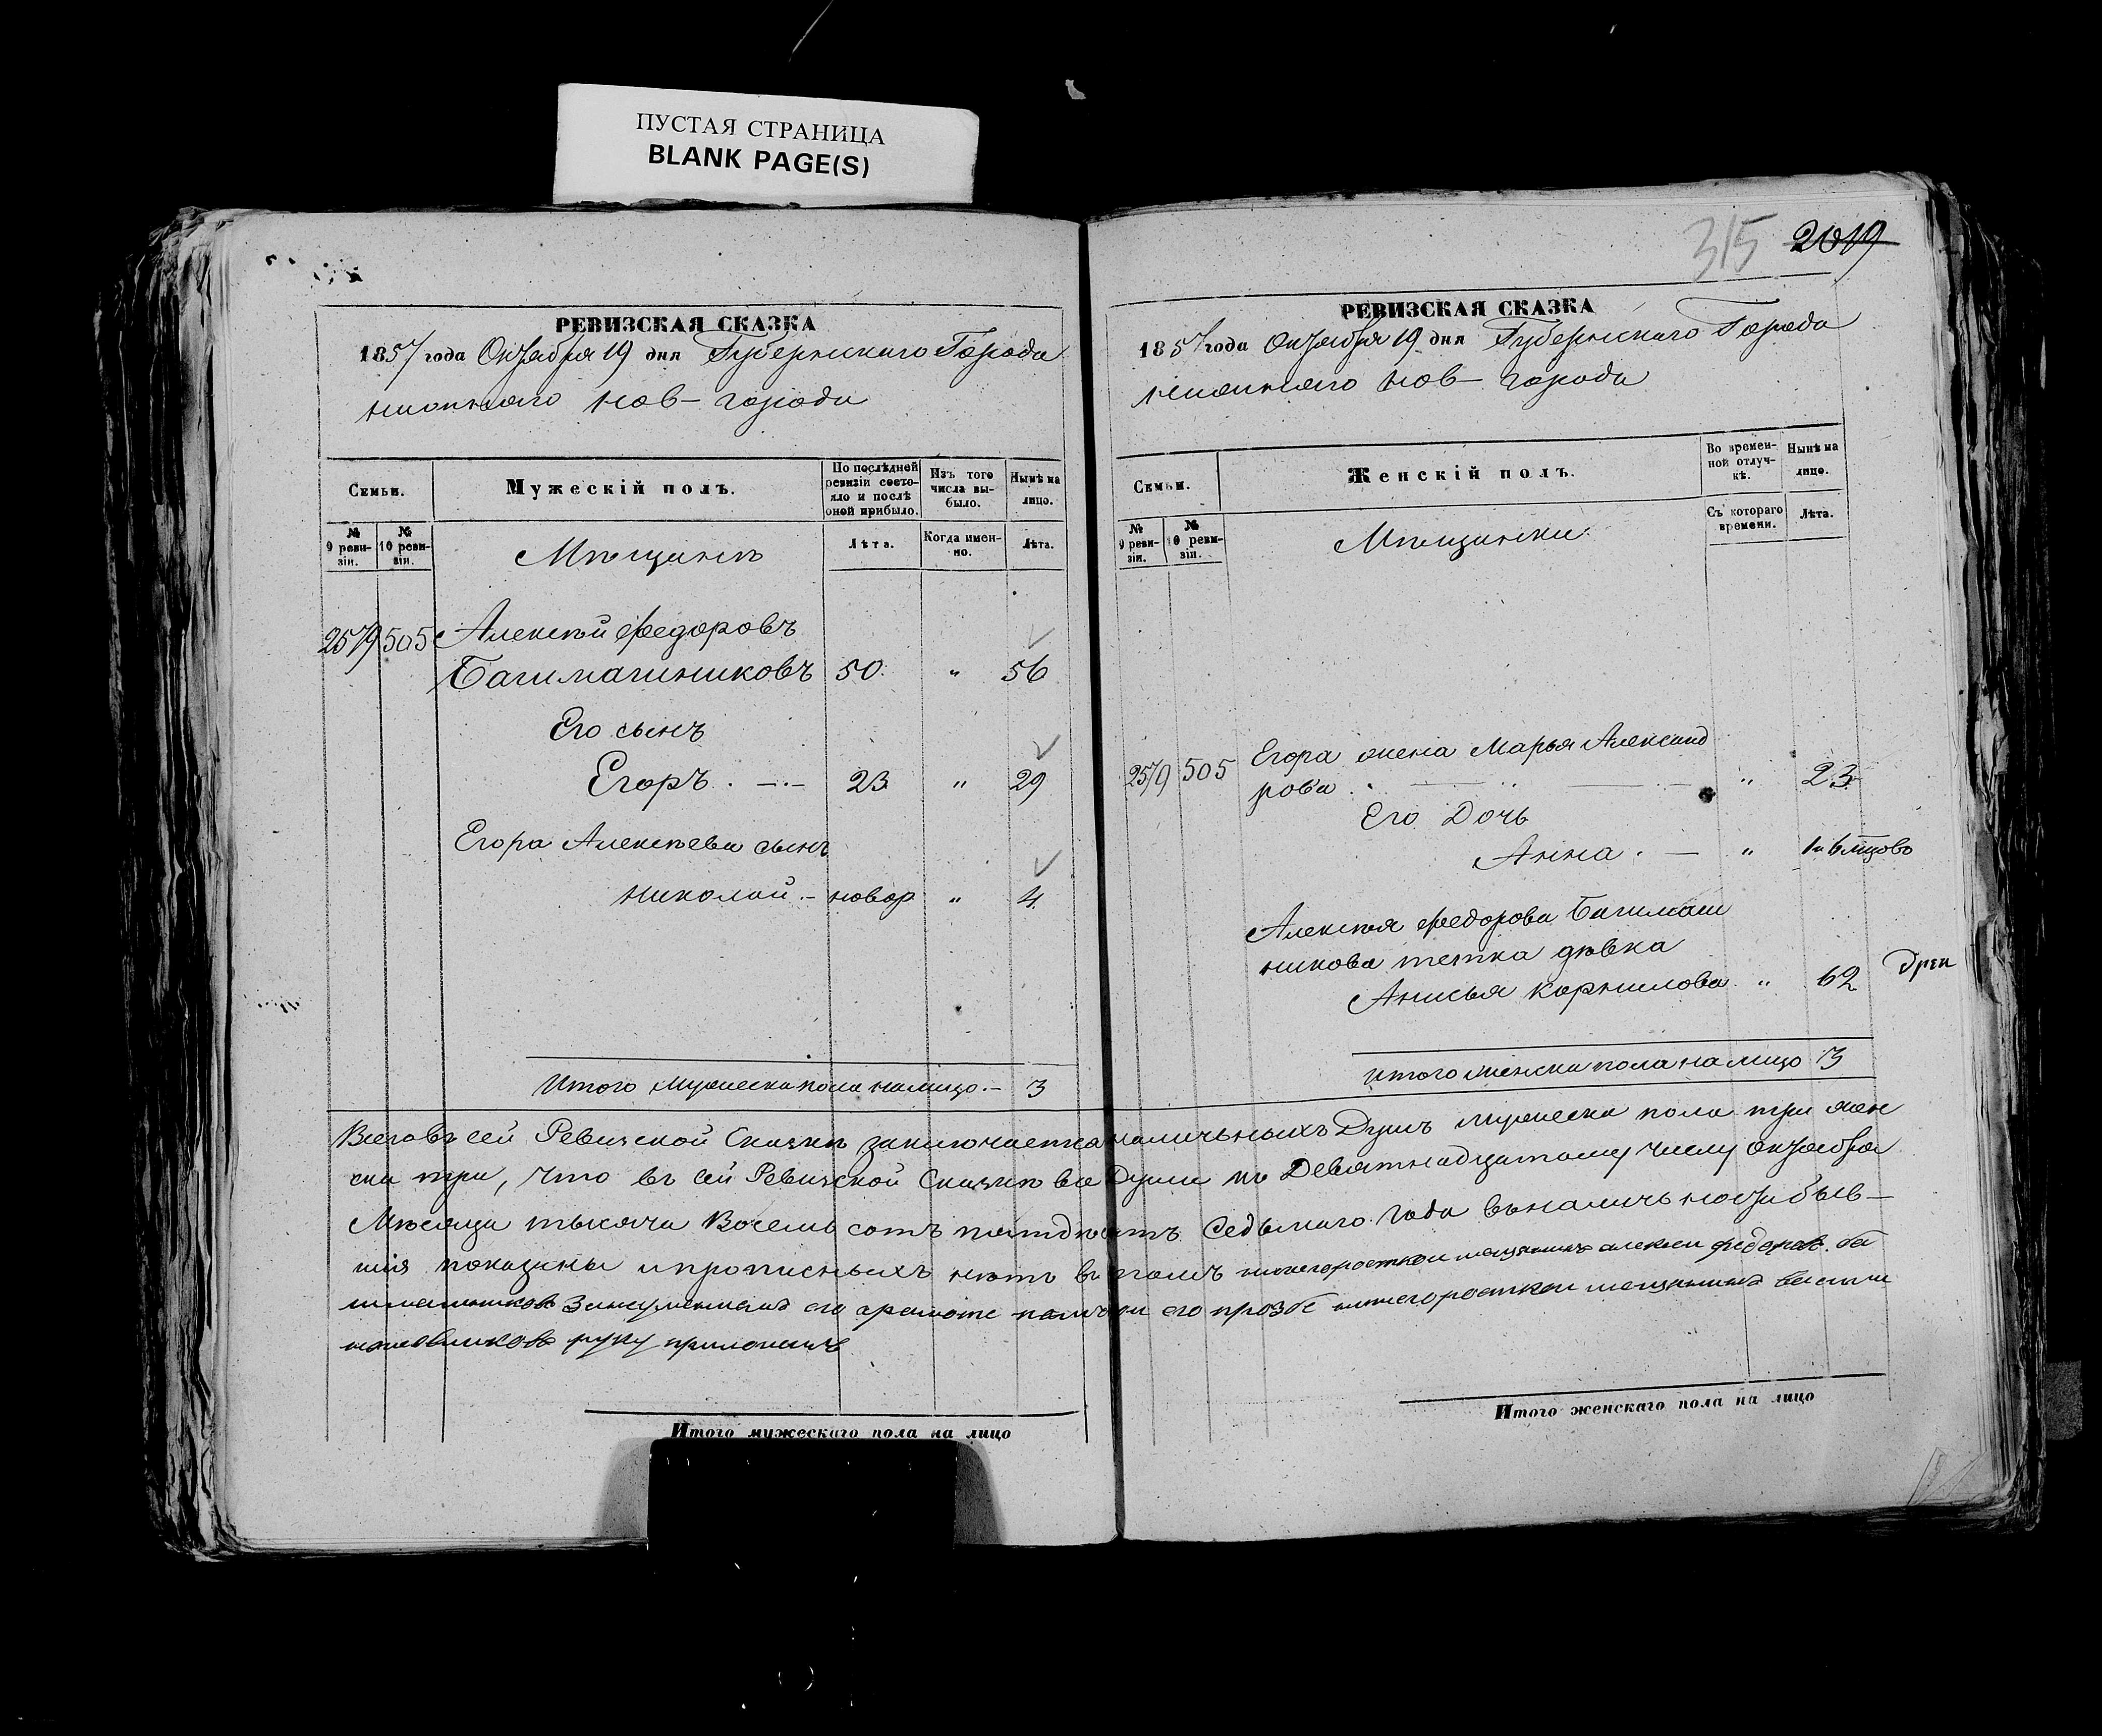 ПУСТАЯ СТРАНИЦА
BLANK PAGE(S)
РЕВИЗСКАЯ СКАЗКА
1857 года Октября 19 дня Губернскаго Города
нижняго нов- города
Семьи.
Мужескій полъ.
По послѣдней ревизіи состояло и послѣ оной прибыло.
Изъ того числа выбыло.
Нынѣ на лицо.
№ 9 ревизіи.
№ 10 ревизіи.
Мѣщинѣ
Лѣта.
Когда именно.
Лѣта.
2579 505 Алексѣй Федоровъ
Башмашниковъ 50 " 56
Его сынъ
Егоръ 23 " 29
Егора Алексѣева сынъ
николай - новор " 4
Итого мужеска пола налицо - 3
315 2019
РЕВИЗСКАЯ СКАЗКА
1857 года Октября 19 дня Губернскаго Города
нижняго нов- города
Семьи.
Женскій полъ.
Во временной отлучкѣ.
Нынѣ на лицо.
№ 9 ревизіи.
№ 10 ревизіи.
Мѣщинки
Съ котораго времени.
Лѣта.
2579 505 Егора жена Марья Александ
рова " 23
Его Дочь
Анна - "
Алексѣя Федорова Башмаш
никова тетка дѣвка
Анисья Корнилова " 62
Итого женска пола на лицо 3
Всего въ сей Ревизской Сказкѣ заключается наличныхъ Душъ мужеска пола три жен
ска три, Что въ сей Ревизской Сказкѣ все Души къ Девятнадцатому числу Октября
Мѣсяца тысяча Восемь сотъ пятдѣсятъ Седьмаго Года въ наличьности быв-
шія показаны и прописныхъ нѣтъ въ томъ нижегороцкой мещанинъ алексеи федоровъ ба
шмашниковъ его грамоте по его прозбе нижегороцкои мещанинъ
руку приложилъ
Итого мужескаго пола на лицо
Итого женскаго пола на лицо